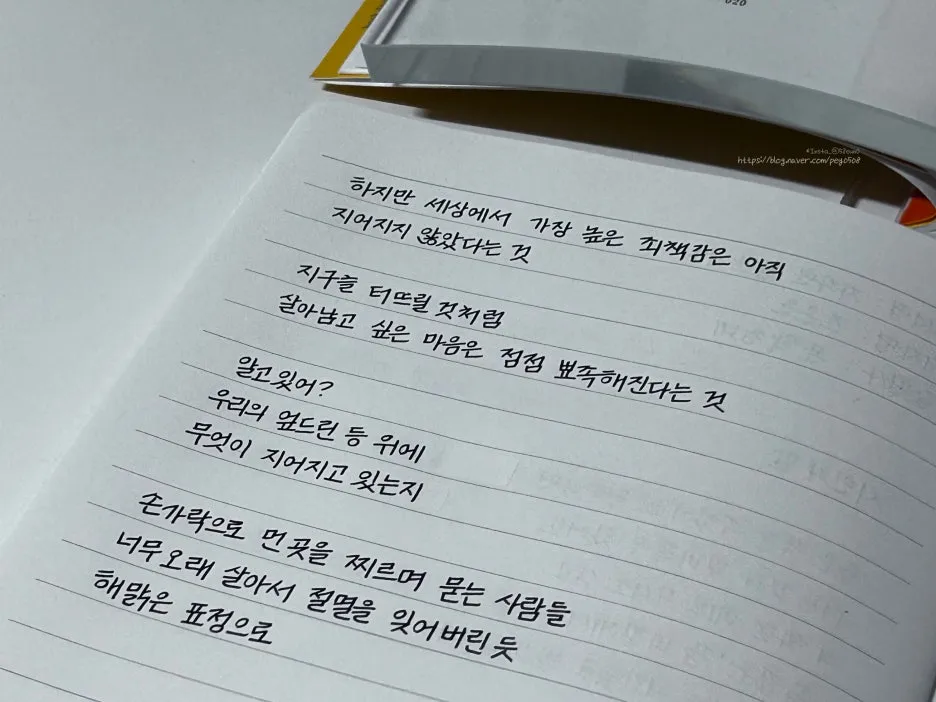 020
*Insta_@
https://blog.naver.com/pey0508
하지만 세상에서 가장 높은 죄책감은 아직
지어지지 않았다는 것
지구를 터뜨릴 것처럼
살아남고 싶은 마음은 점점 뾰족해진다는 것
알고 있어?
우리의 엎드린 등 위에
무엇이 지어지고 있는지
손가락으로 먼 곳을 찌르며 묻는 사람들
너무 오래 살아서 절멸을 잊어버린 듯
해맑은 표정으로